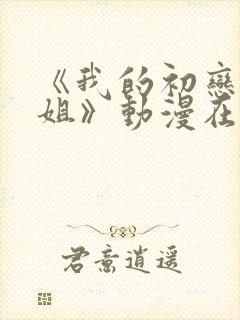 《我的初戀
姐》動漫在
君意逍遥